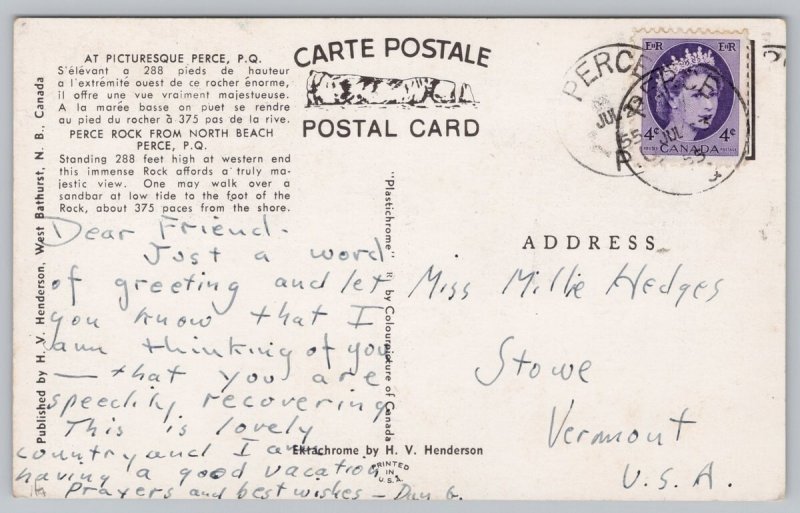 AT PICTURESQUE PERCE, P.Q.
S'élévant a 288 pieds de hauteur
a l'extrémité ouest de ce rocher énorme,
il offre une vue vraiment majestueuse.
A la marée basse on puet se rendre
au pied du rocher à 375 pas de la rive.
PERCE ROCK FROM NORTH BEACH
PERCE, P.Q.
Standing 288 feet high at western end
this immense Rock affords a truly ma-
jestic view. One may walk over a
sandbar at low tide to the foot of the
Rock, about 375 paces from the shore.
CARTE POSTALE
POSTAL CARD
PERCE
JUL
55
P.Q.
E II R
E II R
4¢
4¢
CANADA
Published by H. V. Henderson, West Bathurst, N. B., Canada
"Plastichrome" ® by Colourpicture of Canada
ADDRESS
Dear Friend.
Just a word
of greeting and let
you know that I
am thinking of you
— that you are
speedily recovering
This is lovely
country and I am
having a good vacation
Prayers and best wishes — Dan G.
Miss Millie Hedges
Stowe
Vermont
U.S.A.
Ektachrome by H. V. Henderson
PRINTED
IN
U.S.A.